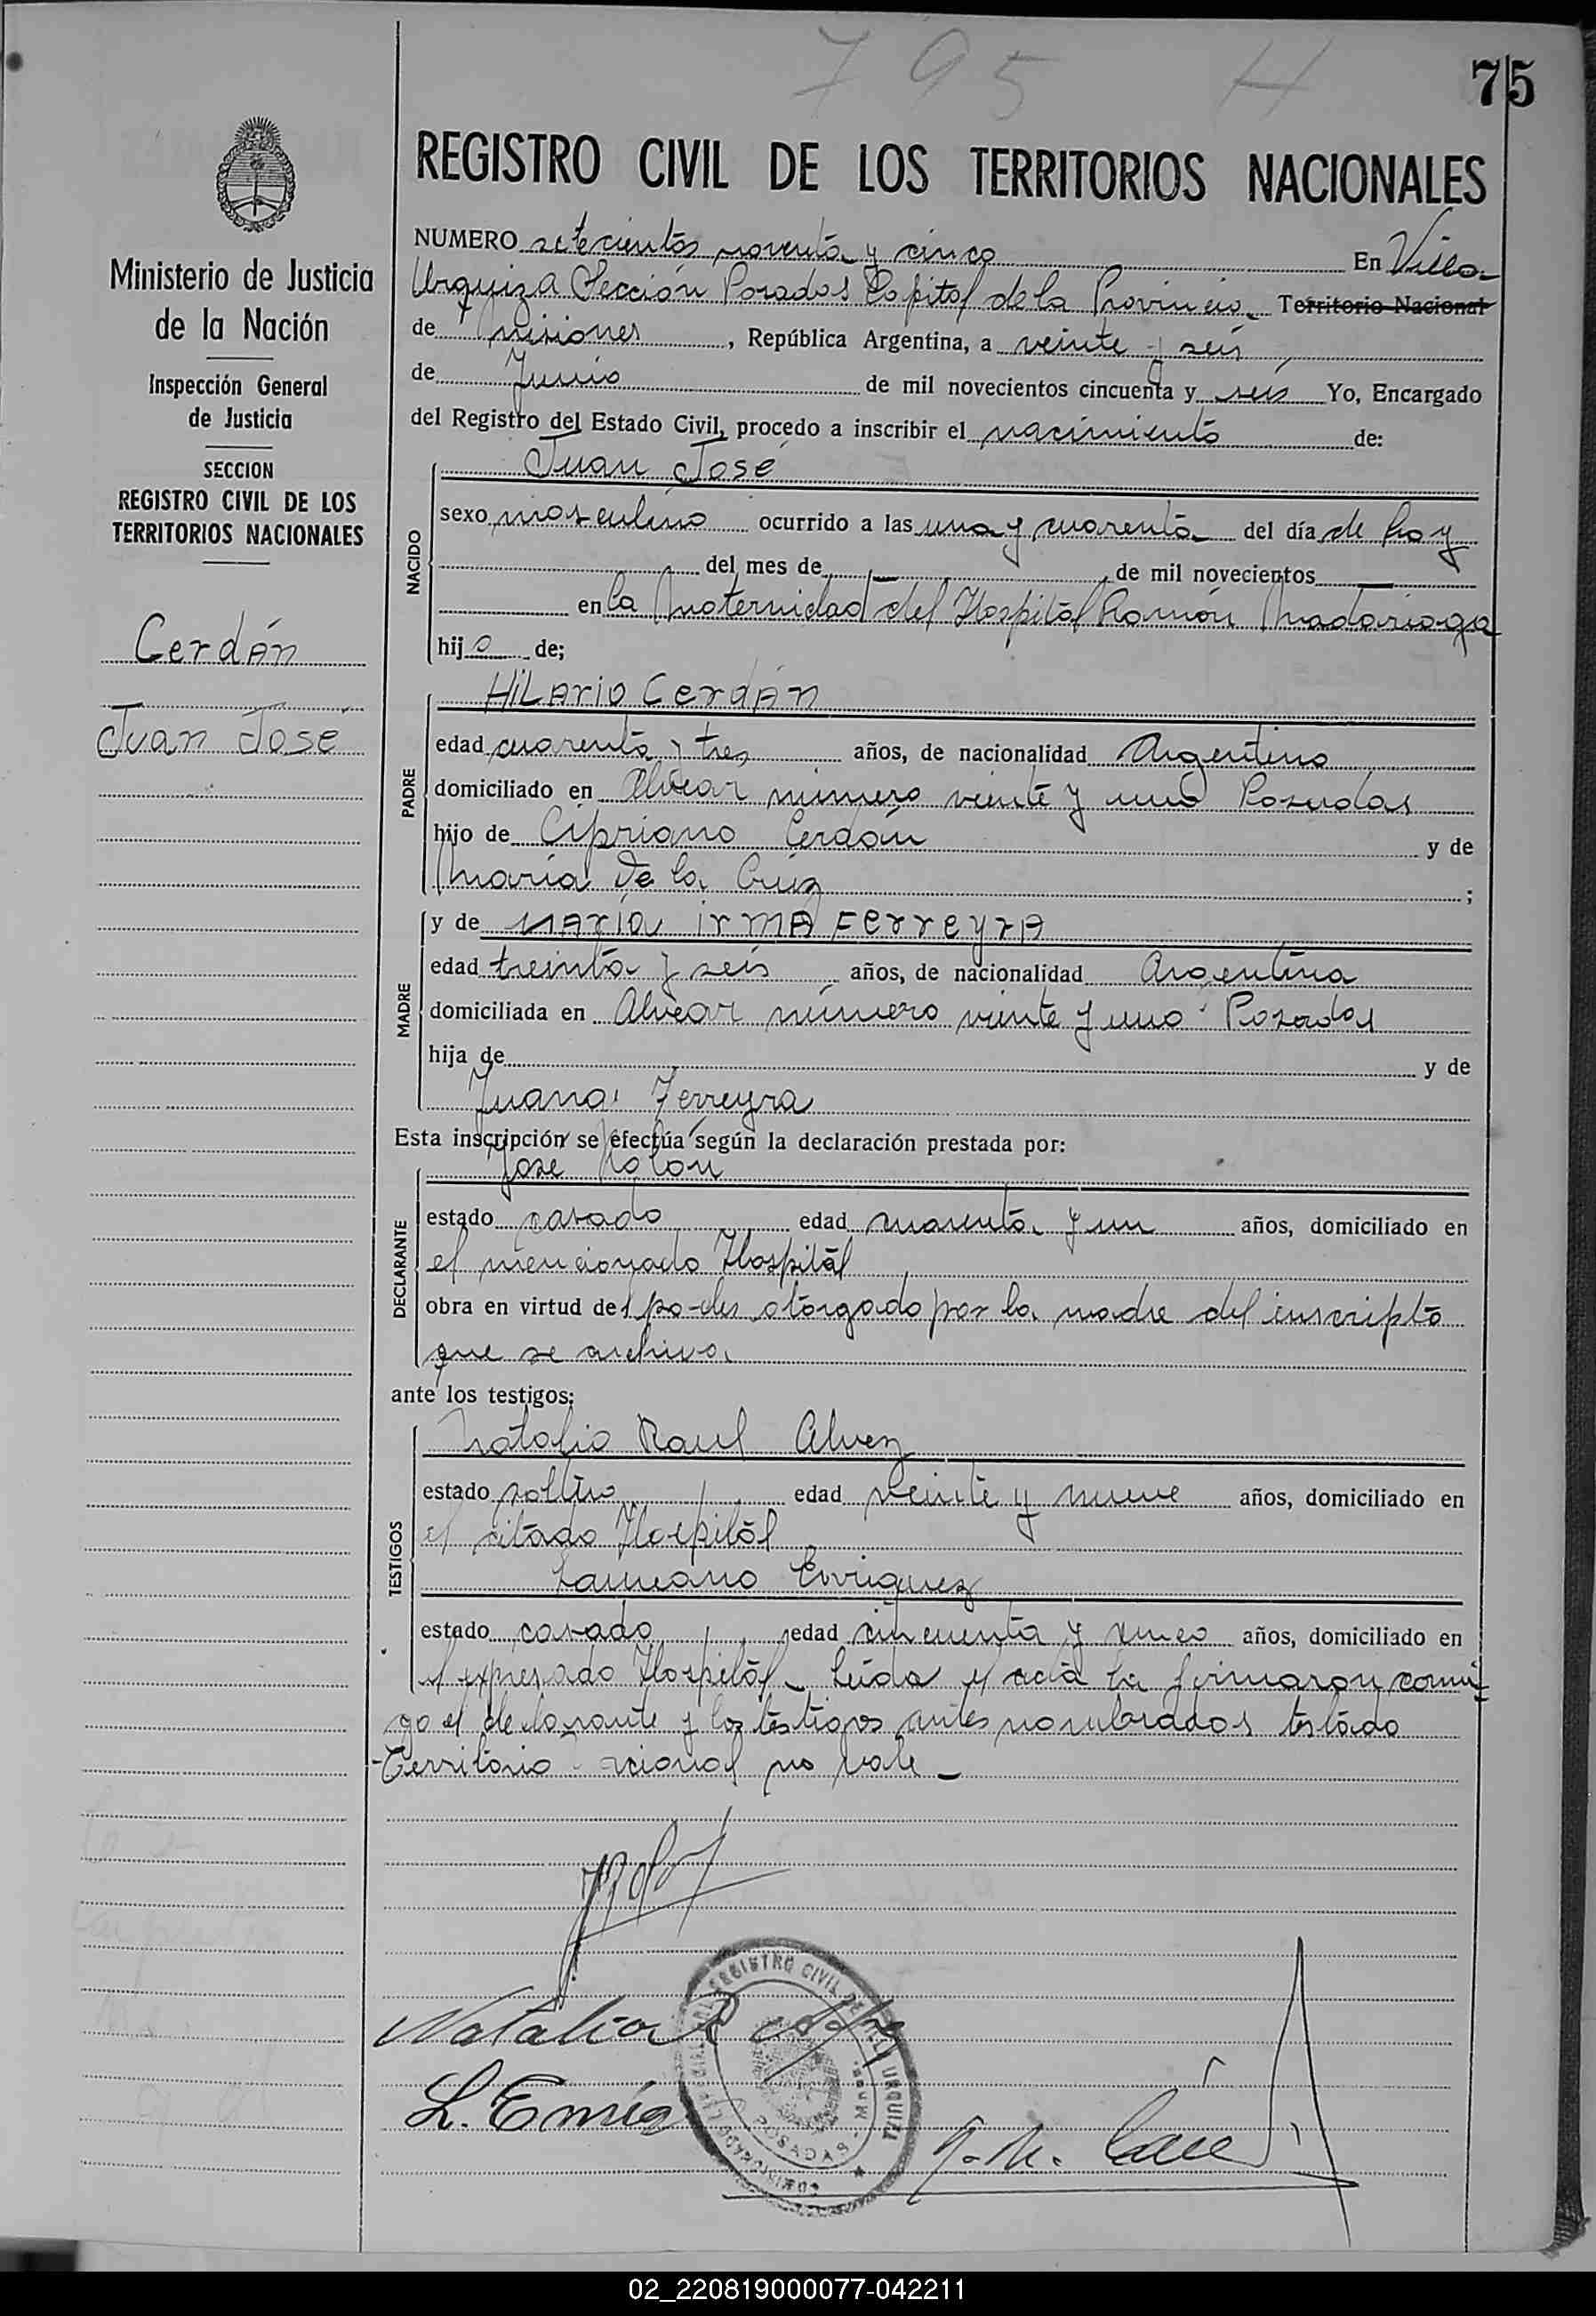 795 H
75
REGISTRO CIVIL DE LOS TERRITORIOS NACIONALES
Ministerio de Justicia
de la Nación
Inspección General
de Justicia
SECCION
REGISTRO CIVIL DE LOS
TERRITORIOS NACIONALES
Cerdán
Juan José
NUMERO setecientos noventa y cinco En Villa
Urquiza Sección Posadas Capital de la Provincia Territorio Nacional
de Misiones, República Argentina, a veinte y seis
de Junio de mil novecientos cincuenta y seis Yo, Encargado
del Registro del Estado Civil, procedo a inscribir el nacimiento de:
NACIDO
Juan José
sexo masculino ocurrido a las una y cuarenta del día de hoy
del mes de — de mil novecientos —
en la Maternidad del Hospital Ramón Madariaga
hijo de;
PADRE
HiLArio CerdÁn
edad cuarenta y tres años, de nacionalidad Argentino
domiciliado en Alvear número veinte y uno Posadas
hijo de Cipriano Cerdán y de
María De la Cruz ;
MADRE
y de MARÍA irMA FerreyrA
edad treinta y seis años, de nacionalidad Argentina
domiciliada en Alvear número veinte y uno Posadas
hija de y de
Juana Ferreyra
Esta inscripción se efectúa según la declaración prestada por:
DECLARANTE
José Rolon
estado casado edad cuarenta y un años, domiciliado en
el mencionado Hospital
obra en virtud del poder otorgado por la madre del inscripto
que se archiva.
ante los testigos:
TESTIGOS
Natalio Raul Alvez
estado soltero edad veinte y nueve años, domiciliado en
el citado Hospital
Laureano Enriquez
estado casado edad cincuenta y cinco años, domiciliado en
el expresado Hospital - Leída el acta la firmaron conmi-
go el declarante y los testigos antes nombrados testado
-Territorio nacional no vale -
Natalio R
REGISTRO CIVIL DE VILLA URQUIZA
POSADAS - Mnes.
02_220819000077-042211